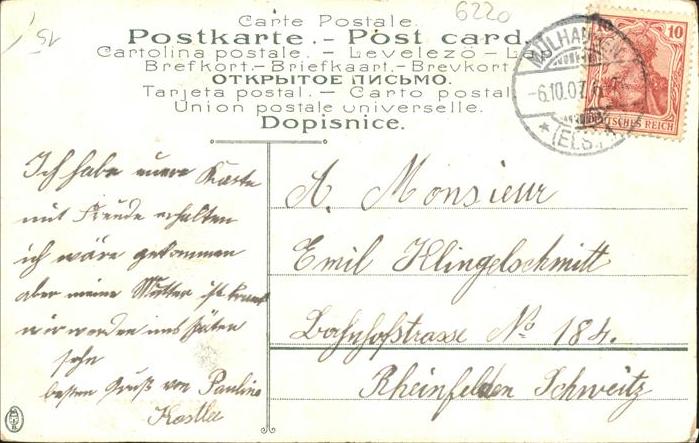 6220
15
Carte Postale.
Postkarte. - Post card.
Cartolina postale. - Levelezö - La
Brefkort. - Briefkaart. - Brevkort
ОТКРЫТОЕ ПИСЬМО.
Tarjeta postal. - Carto postal
Union postale universelle.
Dopisnice.
10
DEUTSCHES REICH
MÜLHAUSEN
-6.10.07.
(ELS.)
Ich habe euere Karte
mit Freude erhalten
ich wäre gekommen
aber meine Mutter ist krank
wir werden uns später
sehn
besten Gruß von Pauline
A. Monsieur
Emil Klingelschmitt
Bahnhofstrasse No 184.
Rheinfelden Schweitz